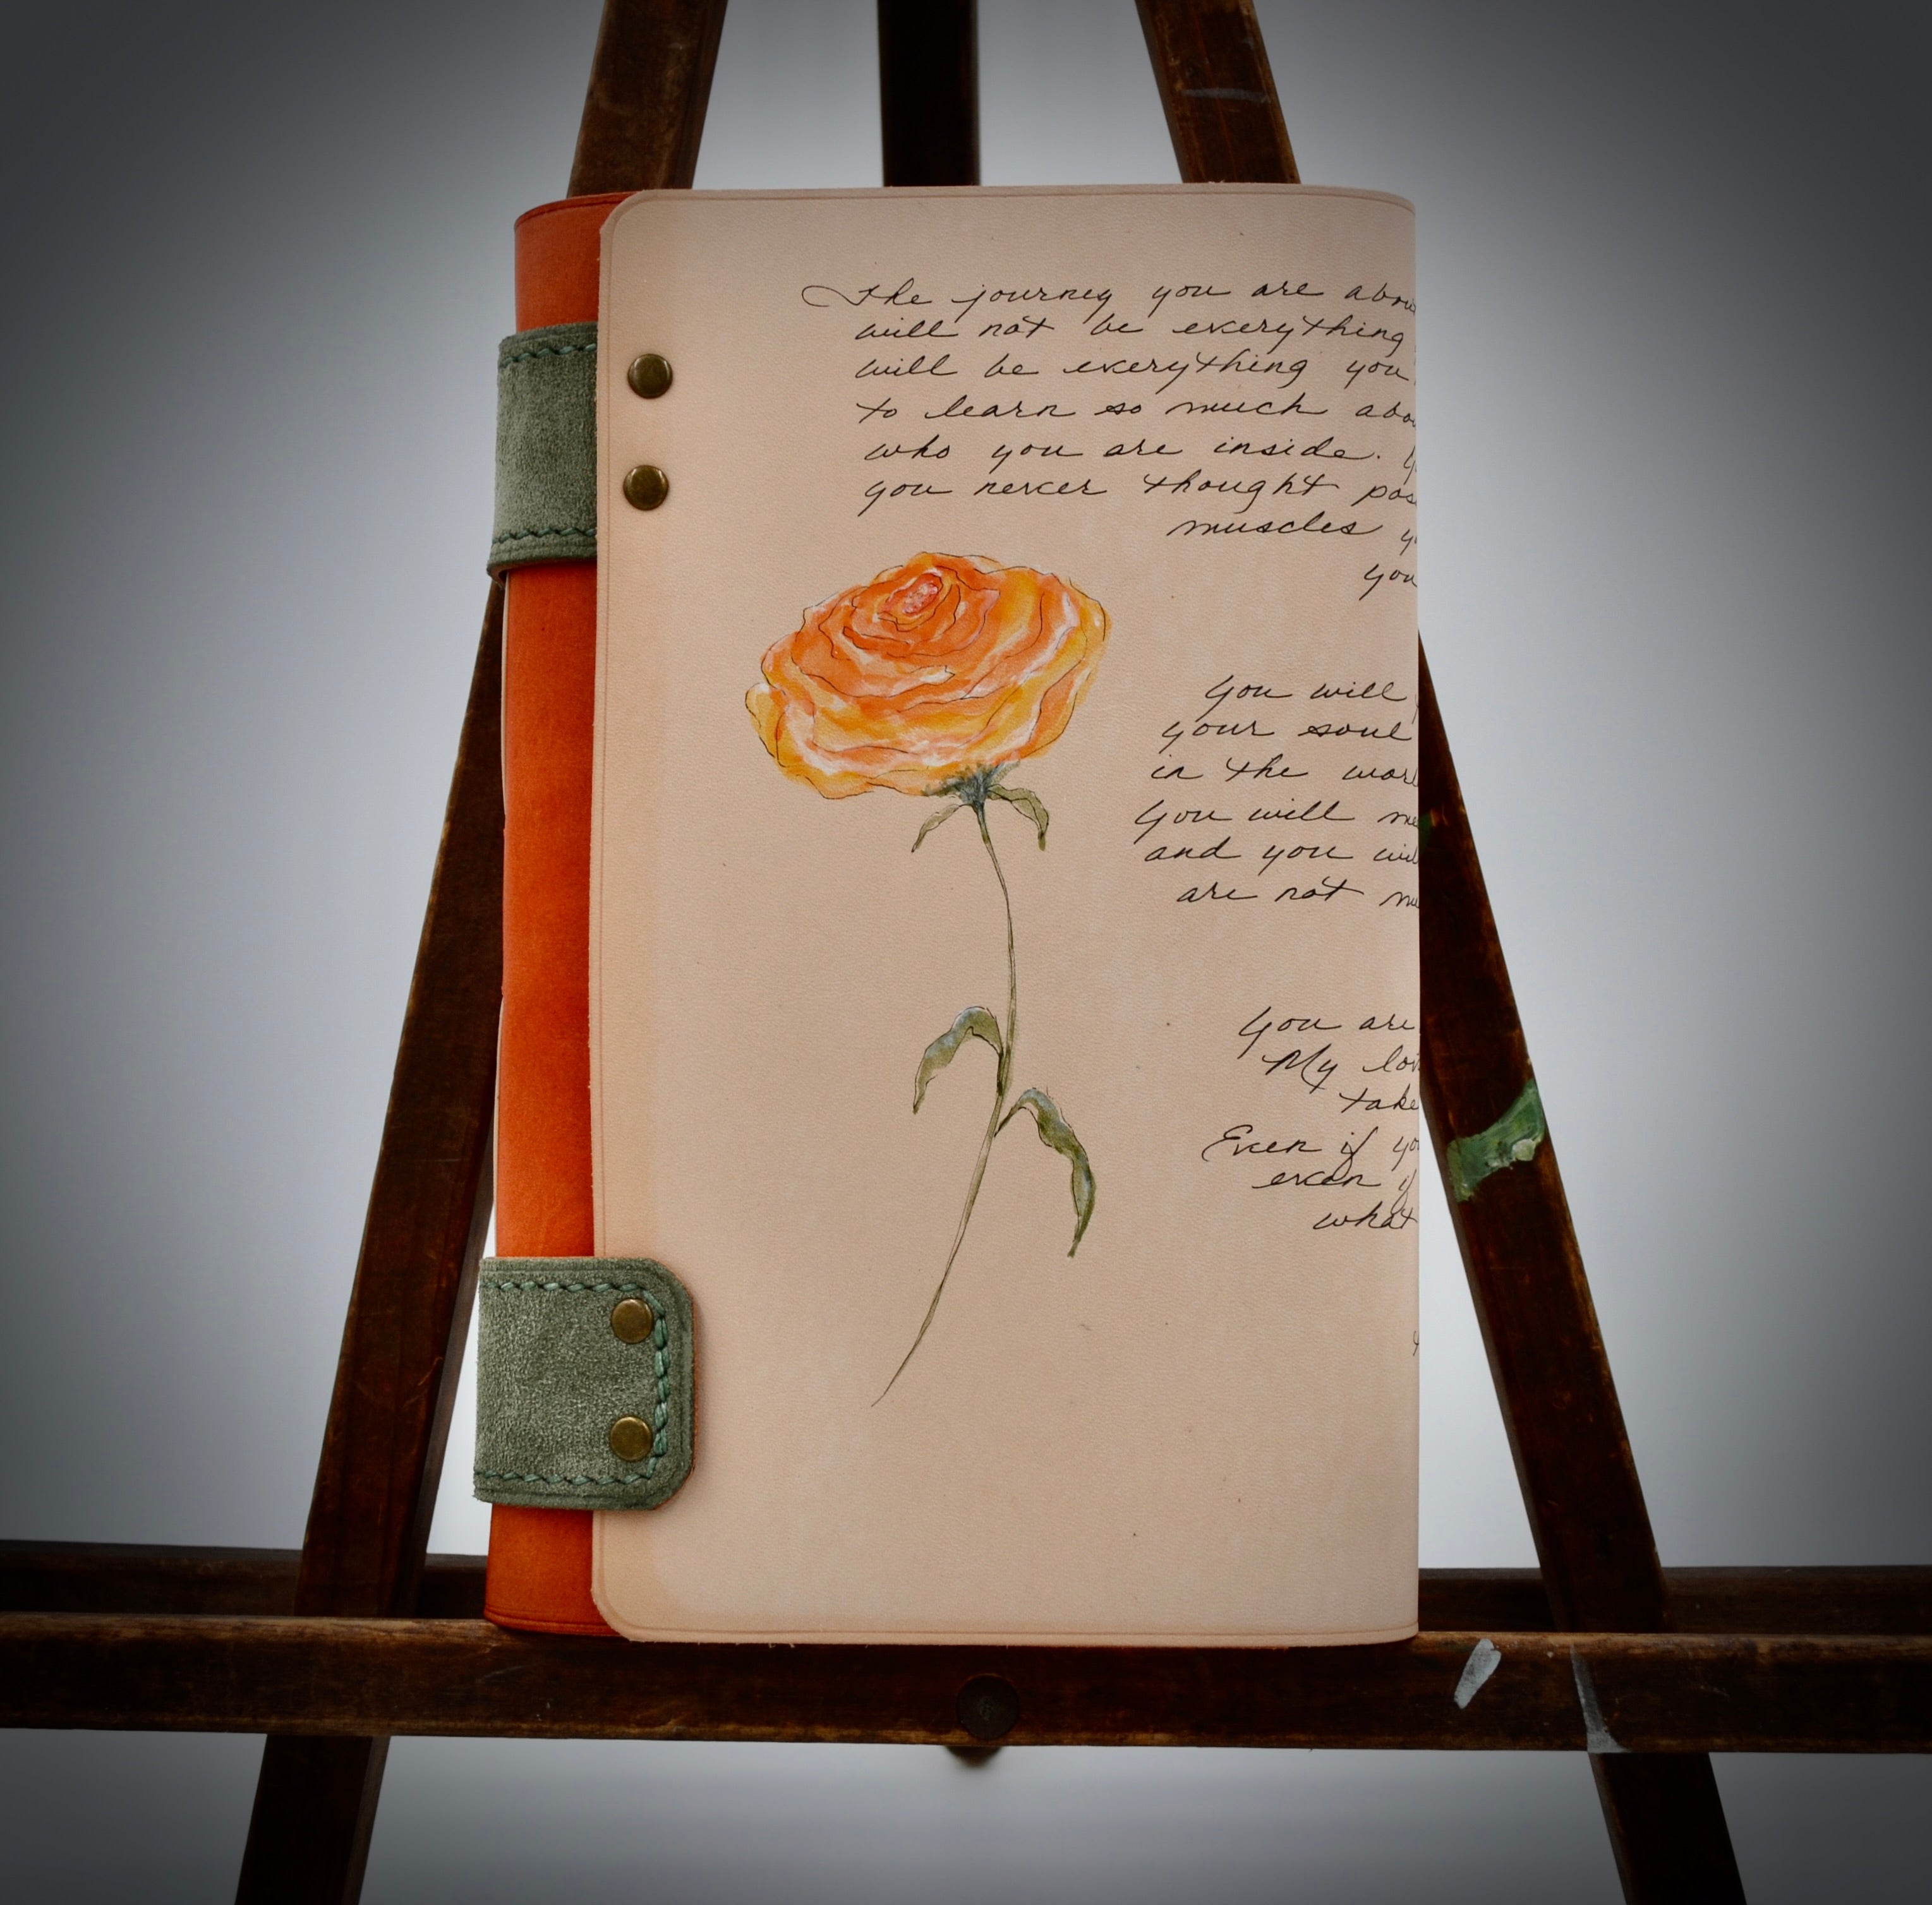 The journey you are
will not be everything
will be everything you
to learn so much
who you are inside.
you never thought
muscles
you
You will
your soul
in the
You will
and you
are not
You are
My
take
Even if
even if
what